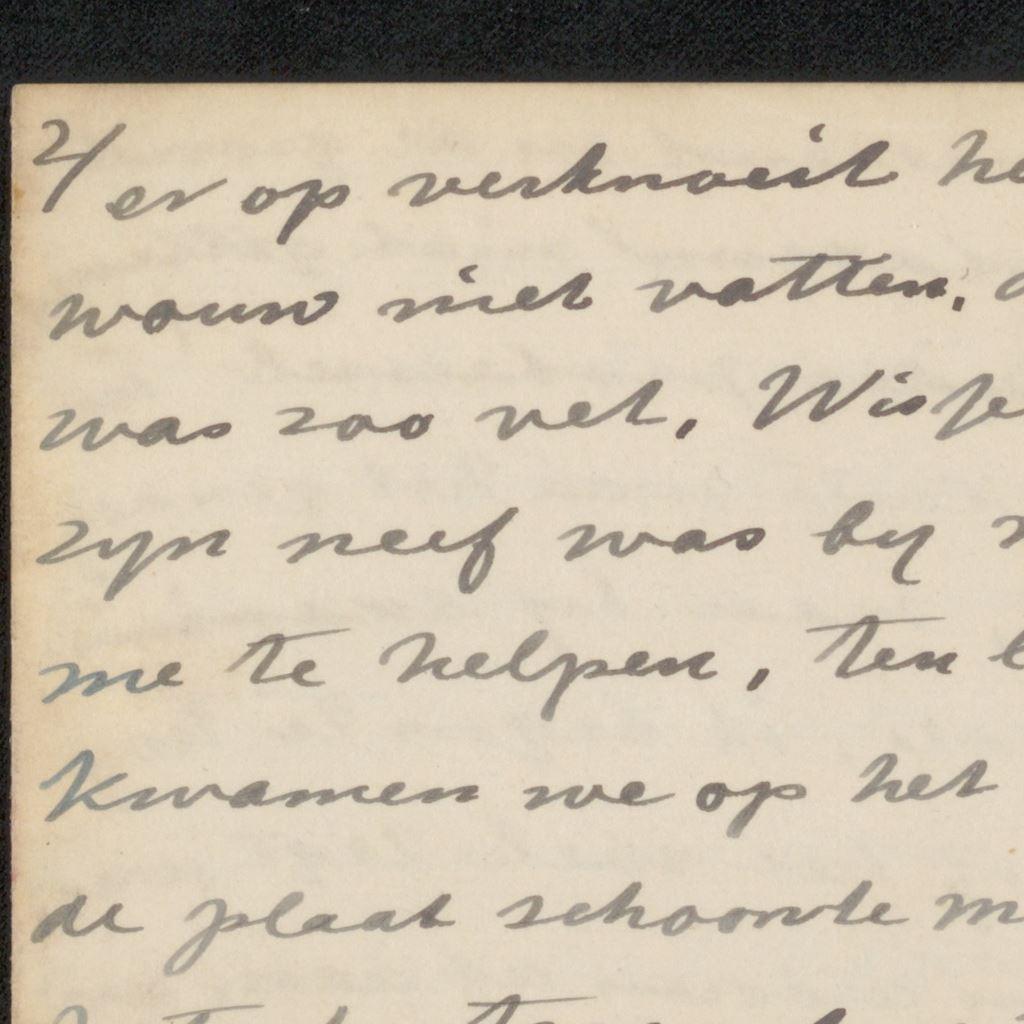 2/ er op verknoeit he
wouw niet vatten,
was zoo vet, Wisje
zyn neef was by
me te helpen, ten
kwamen we op het
de plaat schoonte m